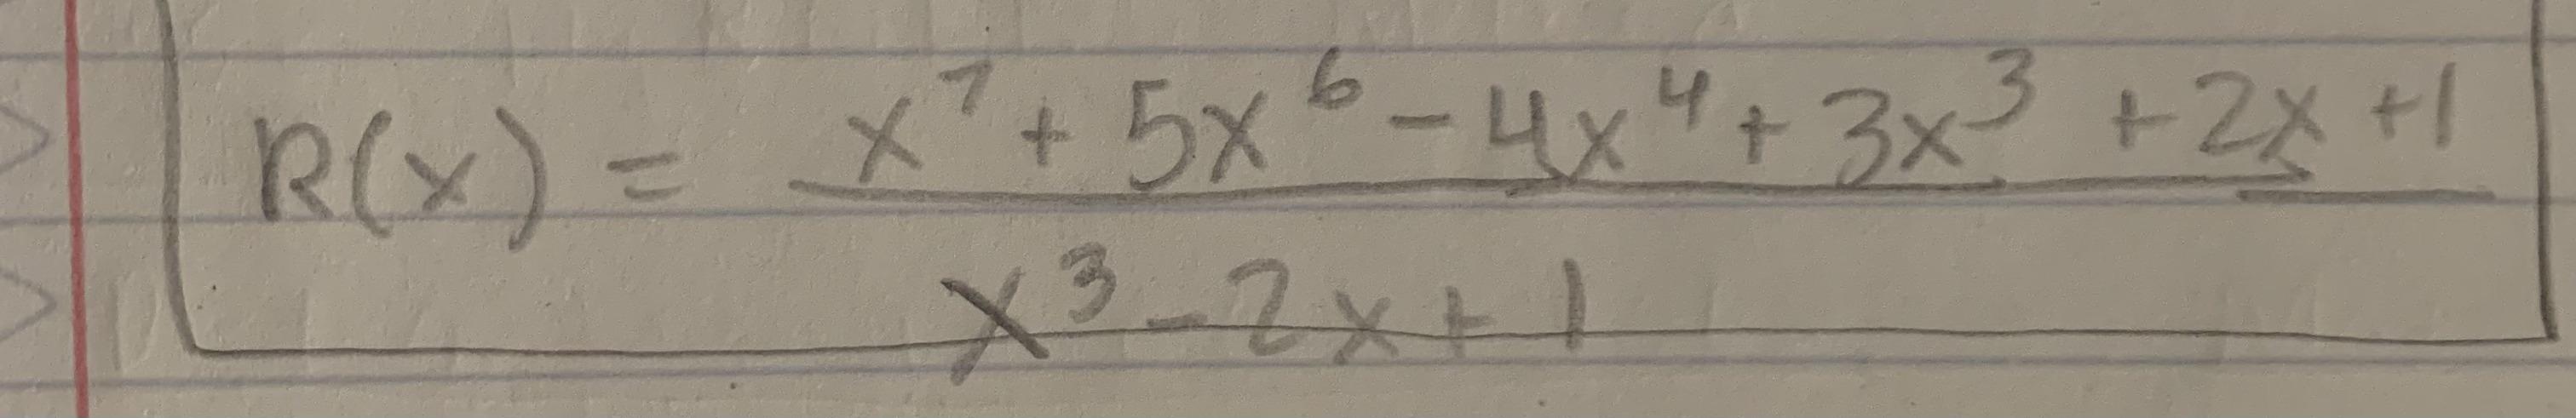 R(x) = x⁷ + 5x⁶ - 4x⁴ + 3x³ + 2x + 1
x³ - 2x + 1